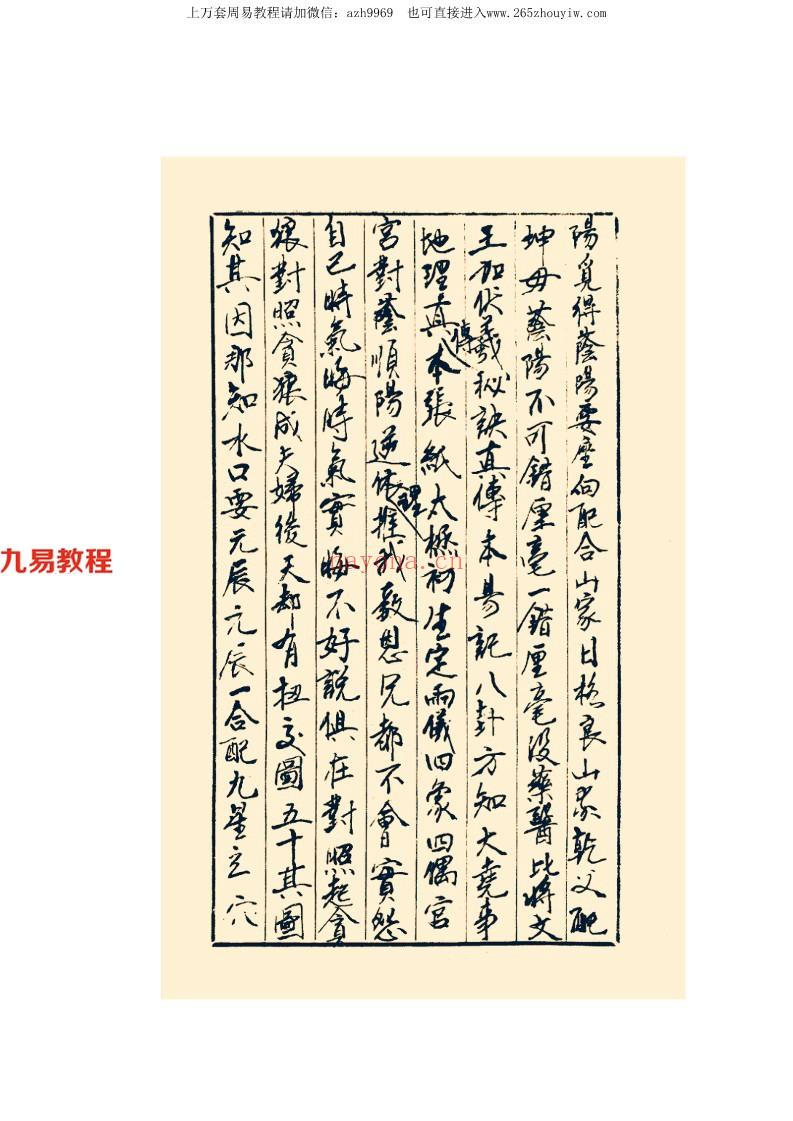 上万套周易教程请加微信：azh9969　也可直接进入www.265zhouyiw.com
陽覓得蔭陽要座向配合山家日格良山家乾父配
坤母蔭陽不可錯厘毫一錯厘毫没藥醫比將文
王加伏羲秘訣真傳本易記八卦方知大堯事
地理真傳本張紙太極初生定兩儀四象四隅宮
宮對蔭順陽逆休推我數恩兄都不會實怨
自己時氣晦時氣實晦不好說俱在對照起貪
狼對照貪狼成夫婦後天都有杻交圖五十其圖
知其因那知水口要元辰元辰一合配九星立穴
九易教程
nayona.cn